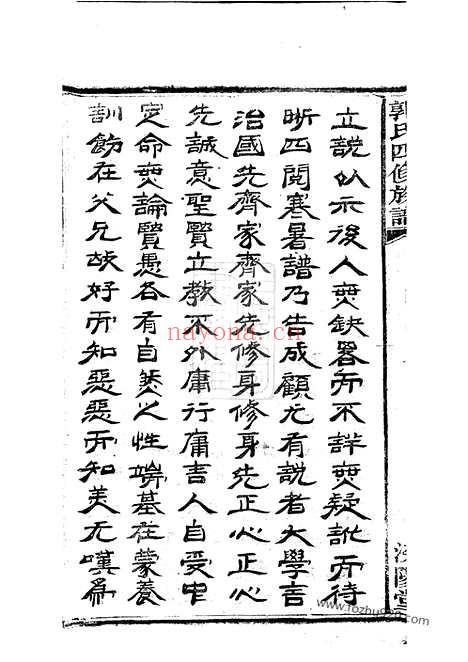 郭氏四修族譜
立說以示後人無缺畧而不詳無疑訛而待
晰四閱寒暑譜乃告成顧尤有說者大學言
治國先齊家齊家先修身修身先正心正心
先誠意聖賢立教不外庸行庸言人自受中
定命無論賢愚各有自然之性端基在蒙養
訓飭在父兄故好而知惡惡而知美尤嘆為
nayona.cn
www.fozhu920.com